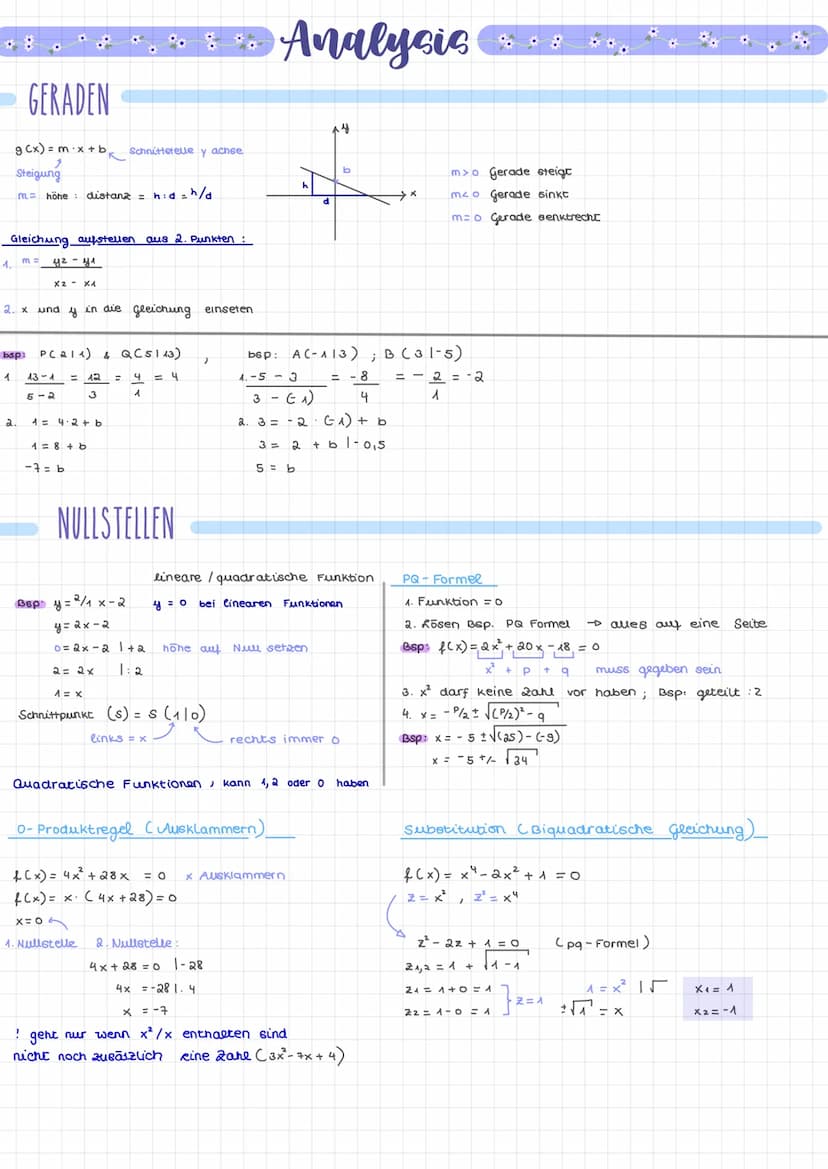 Analysis
GERADEN
g(x) = m · x + b Schnittstelle y achse
Steigung
m = höhe : distanz = h:d = h/d
y
b
h
d
x
m>0 Gerade steigt
m<0 Gerade sinkt
m=0 Gerade senktrecht
Gleichung aufstellen aus 2. Punkten :
1. m = y2 - y1
x2 - x1
2. x und y in die Gleichung einseten
bsp: P(2|1) & Q(5|13) ,
1 13-1 = 12 = 4 = 4
5-2 3 1
2. 1 = 4·2 + b
1 = 8 + b
-7 = b
bsp: A(-1|3) ; B(3|-5)
1. -5 - 3 = -8 = - 2 = -2
3 - (-1) 4 1
2. 3 = -2 · (-1) + b
3 = 2 + b |-0,5
5 = b
NULLSTELLEN
lineare / quadratische Funktion
Bsp: y = 2/1 x - 2 y = 0 bei linearen Funktionen
y = 2x - 2
0 = 2x - 2 | +2 höhe auf Null setzen
2 = 2x | : 2
1 = x
Schnittpunkt (s) = s (1|0)
links = x rechts immer 0
Quadratische Funktionen , kann 1,2 oder 0 haben
PQ - Formel
1. Funktion = 0
2. Lösen Bsp. PQ Formel → alles auf eine Seite
Bsp: f(x) = 2x² + 20x - 18 = 0
x² + p + q muss gegeben sein
3. x² darf keine Zahl vor haben ; Bsp: geteilt : 2
4. x = - P/2 ± √(P/2)² - q
Bsp: x = - 5 ± √(25) - (-9)
x = -5 +/- √34
0- Produktregel (Ausklammern)
f(x) = 4x² + 28x = 0 x Ausklammern
f(x) = x · (4x + 28) = 0
x = 0
1. Nullstelle 2. Nullstelle :
4x + 28 = 0 |-28
4x = -28 |. 4
x = -7
! geht nur wenn x²/x enthalten sind
nicht noch zusäszlich eine Zahl (3x² - 7x + 4)
Substitution (Biquadratische Gleichung)
f(x) = x⁴ - 2x² + 1 = 0
z = x² , z² = x⁴
z² - 2z + 1 = 0 (pq - Formel)
z1,2 = 1 + √1 - 1
z1 = 1 + 0 = 1 z = 1 1 = x² | √ x1 = 1
z2 = 1 - 0 = 1 ±√1 = x x2 = -1